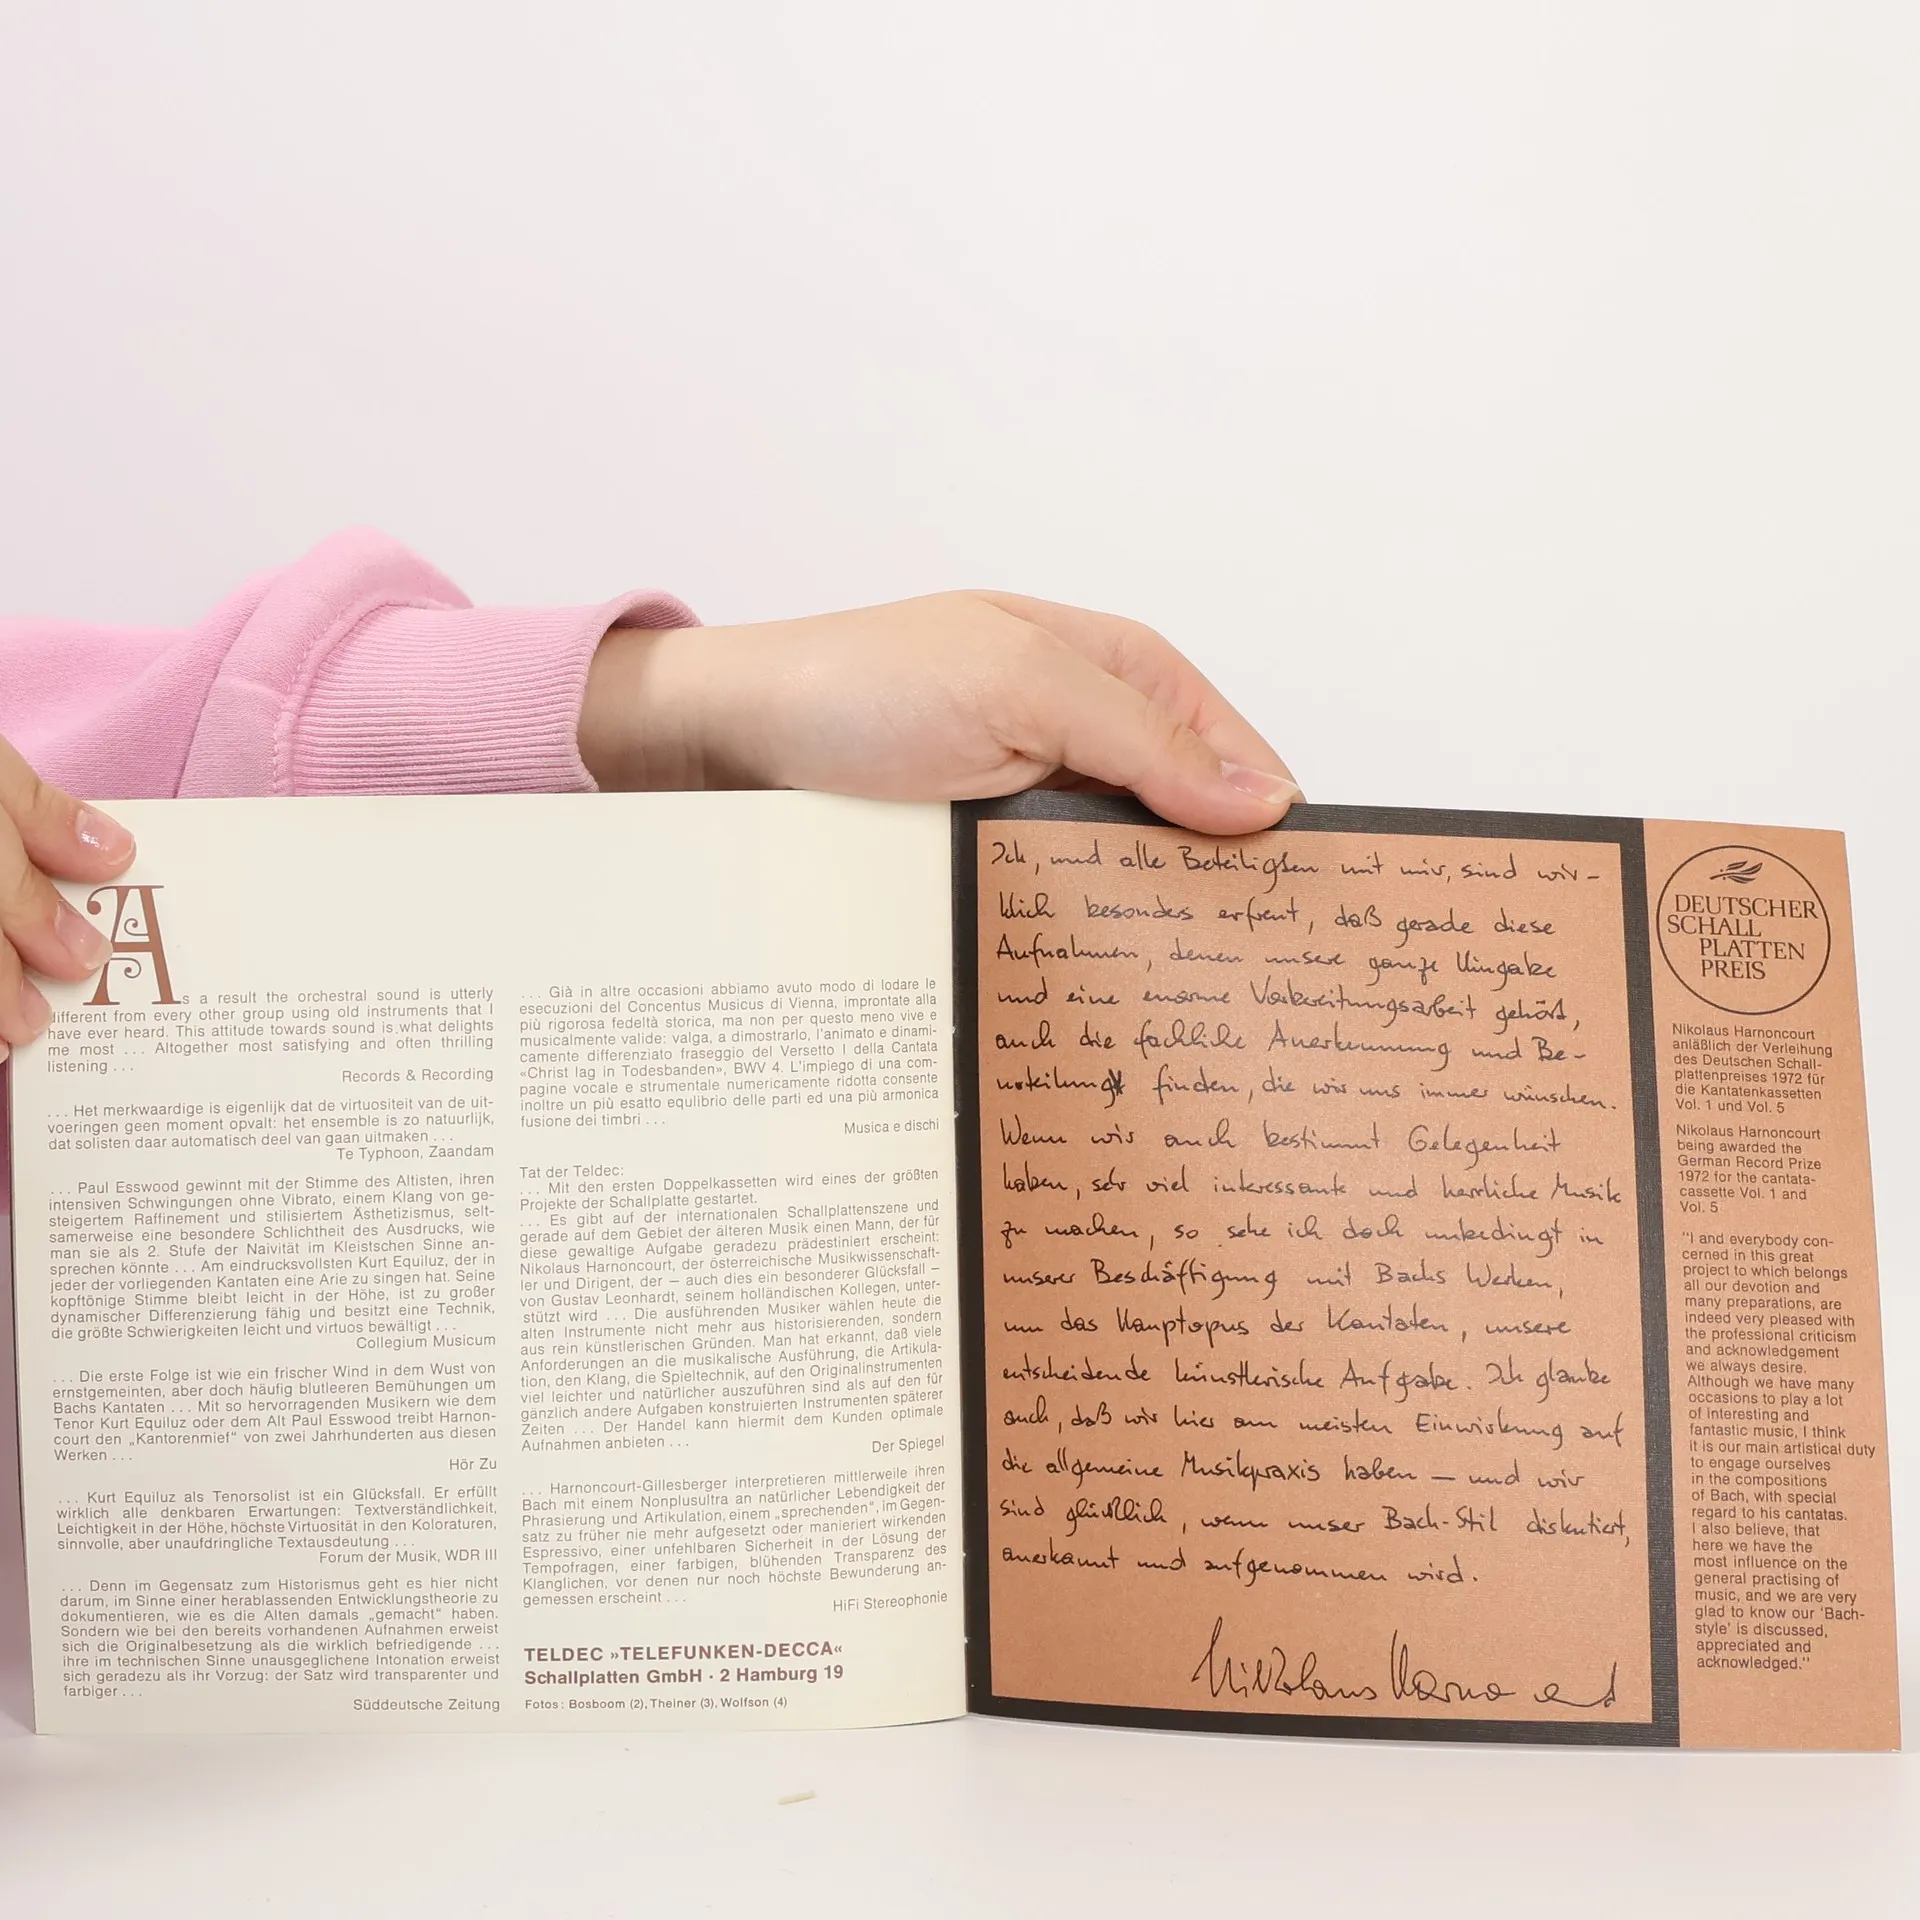 As a result the orchestral sound is utterly
different from every other group using old instruments that I
have ever heard. This attitude towards sound is what delights
me most ... Altogether most satisfying and often thrilling
listening ...
Records & Recording
... Het merkwaardige is eigenlijk dat de virtuositeit van de uit-
voeringen geen moment opvalt: het ensemble is zo natuurlijk,
dat solisten daar automatisch deel van gaan uitmaken ...
Te Typhoon, Zaandam
... Paul Esswood gewinnt mit der Stimme des Altisten, ihren
intensiven Schwingungen ohne Vibrato, einem Klang von ge-
steigertem Raffinement und stilisiertem Ästhetizismus, selt-
samerweise eine besondere Schlichtheit des Ausdrucks, wie
man sie als 2. Stufe der Naivität im Kleistschen Sinne an-
sprechen könnte ... Am eindrucksvollsten Kurt Equiluz, der in
jeder der vorliegenden Kantaten eine Arie zu singen hat. Seine
kopftönige Stimme bleibt leicht in der Höhe, ist zu großer
dynamischer Differenzierung fähig und besitzt eine Technik,
die größte Schwierigkeiten leicht und virtuos bewältigt ...
Collegium Musicum
... Die erste Folge ist wie ein frischer Wind in dem Wust von
ernstgemeinten, aber doch häufig blutleeren Bemühungen um
Bachs Kantaten ... Mit so hervorragenden Musikern wie dem
Tenor Kurt Equiluz oder dem Alt Paul Esswood treibt Harnon-
court den „Kantorenmief“ von zwei Jahrhunderten aus diesen
Werken ...
Hör Zu
... Kurt Equiluz als Tenorsolist ist ein Glücksfall. Er erfüllt
wirklich alle denkbaren Erwartungen: Textverständlichkeit,
Leichtigkeit in der Höhe, höchste Virtuosität in den Koloraturen,
sinnvolle, aber unaufdringliche Textausdeutung ...
Forum der Musik, WDR III
... Denn im Gegensatz zum Historismus geht es hier nicht
darum, im Sinne einer herablassenden Entwicklungstheorie zu
dokumentieren, wie es die Alten damals „gemacht“ haben.
Sondern wie bei den bereits vorhandenen Aufnahmen erweist
sich die Originalbesetzung als die wirklich befriedigende ...
ihre im technischen Sinne unausgeglichene Intonation erweist
sich geradezu als ihr Vorzug: der Satz wird transparenter und
farbiger ...
Süddeutsche Zeitung
... Già in altre occasioni abbiamo avuto modo di lodare le
esecuzioni del Concentus Musicus di Vienna, improntate alla
più rigorosa fedeltà storica, ma non per questo meno vive e
musicalmente valide: valga, a dimostrarlo, l'animato e dinami-
camente differenziato fraseggio del Versetto I della Cantata
«Christ lag in Todesbanden», BWV 4. L'impiego di una com-
pagine vocale e strumentale numericamente ridotta consente
inoltre un più esatto equlibrio delle parti ed una più armonica
fusione dei timbri ...
Musica e dischi
Tat der Teldec:
... Mit den ersten Doppelkassetten wird eines der größten
Projekte der Schallplatte gestartet.
... Es gibt auf der internationalen Schallplattenszene und
gerade auf dem Gebiet der älteren Musik einen Mann, der für
diese gewaltige Aufgabe geradezu prädestiniert erscheint:
Nikolaus Harnoncourt, der österreichische Musikwissenschaft-
ler und Dirigent, der – auch dies ein besonderer Glücksfall –
von Gustav Leonhardt, seinem holländischen Kollegen, unter-
stützt wird ... Die ausführenden Musiker wählen heute die
alten Instrumente nicht mehr aus historisierenden, sondern
aus rein künstlerischen Gründen. Man hat erkannt, daß viele
Anforderungen an die musikalische Ausführung, die Artikula-
tion, den Klang, die Spieltechnik, auf den Originalinstrumenten
viel leichter und natürlicher auszuführen sind als auf den für
gänzlich andere Aufgaben konstruierten Instrumenten späterer
Zeiten ... Der Handel kann hiermit dem Kunden optimale
Aufnahmen anbieten ...
Der Spiegel
... Harnoncourt-Gillesberger interpretieren mittlerweile ihren
Bach mit einem Nonplusultra an natürlicher Lebendigkeit der
Phrasierung und Artikulation, einem „sprechenden“, im Gegen-
satz zu früher nie mehr aufgesetzt oder manieriert wirkenden
Espressivo, einer unfehlbaren Sicherheit in der Lösung der
Tempofragen, einer farbigen, blühenden Transparenz des
Klanglichen, vor denen nur noch höchste Bewunderung an-
gemessen erscheint ...
HiFi Stereophonie
TELDEC »TELEFUNKEN-DECCA«
Schallplatten GmbH · 2 Hamburg 19
Fotos: Bosboom (2), Theiner (3), Wolfson (4)
Ich, und alle Beteiligten mit mir, sind wir-
klich besonders erfreut, daß gerade diese
Aufnahmen, denen unsere ganze Hingabe
und eine enorme Vorbereitungsarbeit gehört,
auch die fachliche Anerkennung und Be-
urteilung finden, die wir uns immer wünschen.
Wenn wir auch bestimmt Gelegenheit
haben, sehr viel interessante und herrliche Musik
zu machen, so sehe ich doch unbedingt in
unserer Beschäftigung mit Bachs Werken,
um das Hauptopus der Kantaten, unsere
entscheidende künstlerische Aufgabe. Ich glaube
auch, daß wir hier am meisten Einwirkung auf
die allgemeine Musikpraxis haben – und wir
sind glücklich, wenn unser Bach-Stil diskutiert,
anerkannt und aufgenommen wird.
Nikolaus Harnoncourt
DEUTSCHER
SCHALL
PLATTEN
PREIS
Nikolaus Harnoncourt
anläßlich der Verleihung
des Deutschen Schall-
plattenpreises 1972 für
die Kantatenkassetten
Vol. 1 und Vol. 5
Nikolaus Harnoncourt
being awarded the
German Record Prize
1972 for the cantata-
cassette Vol. 1 and
Vol. 5
"I and everybody con-
cerned in this great
project to which belongs
all our devotion and
many preparations, are
indeed very pleased with
the professional criticism
and acknowledgement
we always desire.
Although we have many
occasions to play a lot
of interesting and
fantastic music, I think
it is our main artistical duty
to engage ourselves
in the compositions
of Bach, with special
regard to his cantatas.
I also believe, that
here we have the
most influence on the
general practising of
music, and we are very
glad to know our 'Bach-
style' is discussed,
appreciated and
acknowledged."